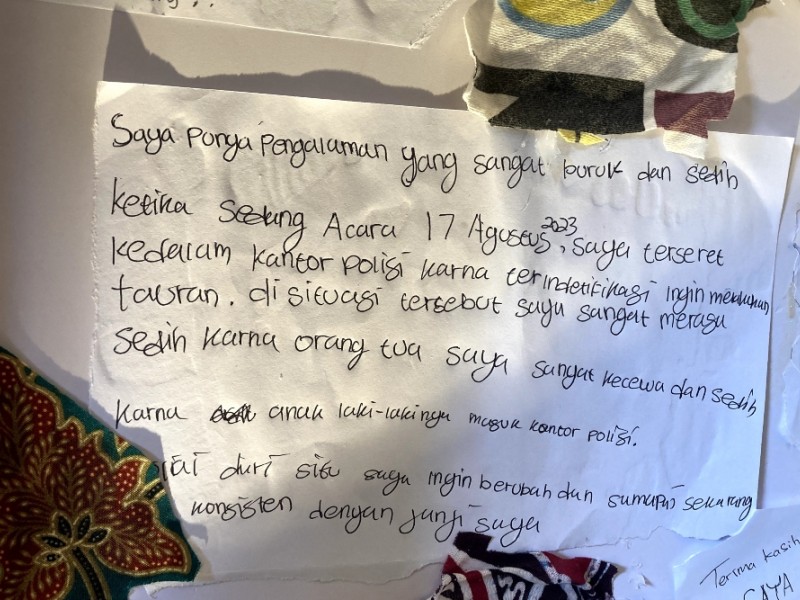 Saya punya pengalaman yang sangat buruk dan sedih
ketika sedang Acara 17 Agustus 2023, saya terseret
kedalam kantor polisi karna terindetifikasi ingin melakukan
tauran. di situasi tersebut saya sangat merasa
sedih karna orang tua saya sangat kecewa dan sedih
karna anak laki-lakinya masuk kantor polisi.
dari situ saya ingin berubah dan sampai sekarang
konsisten dengan janji saya
Terima kasih
SAYA